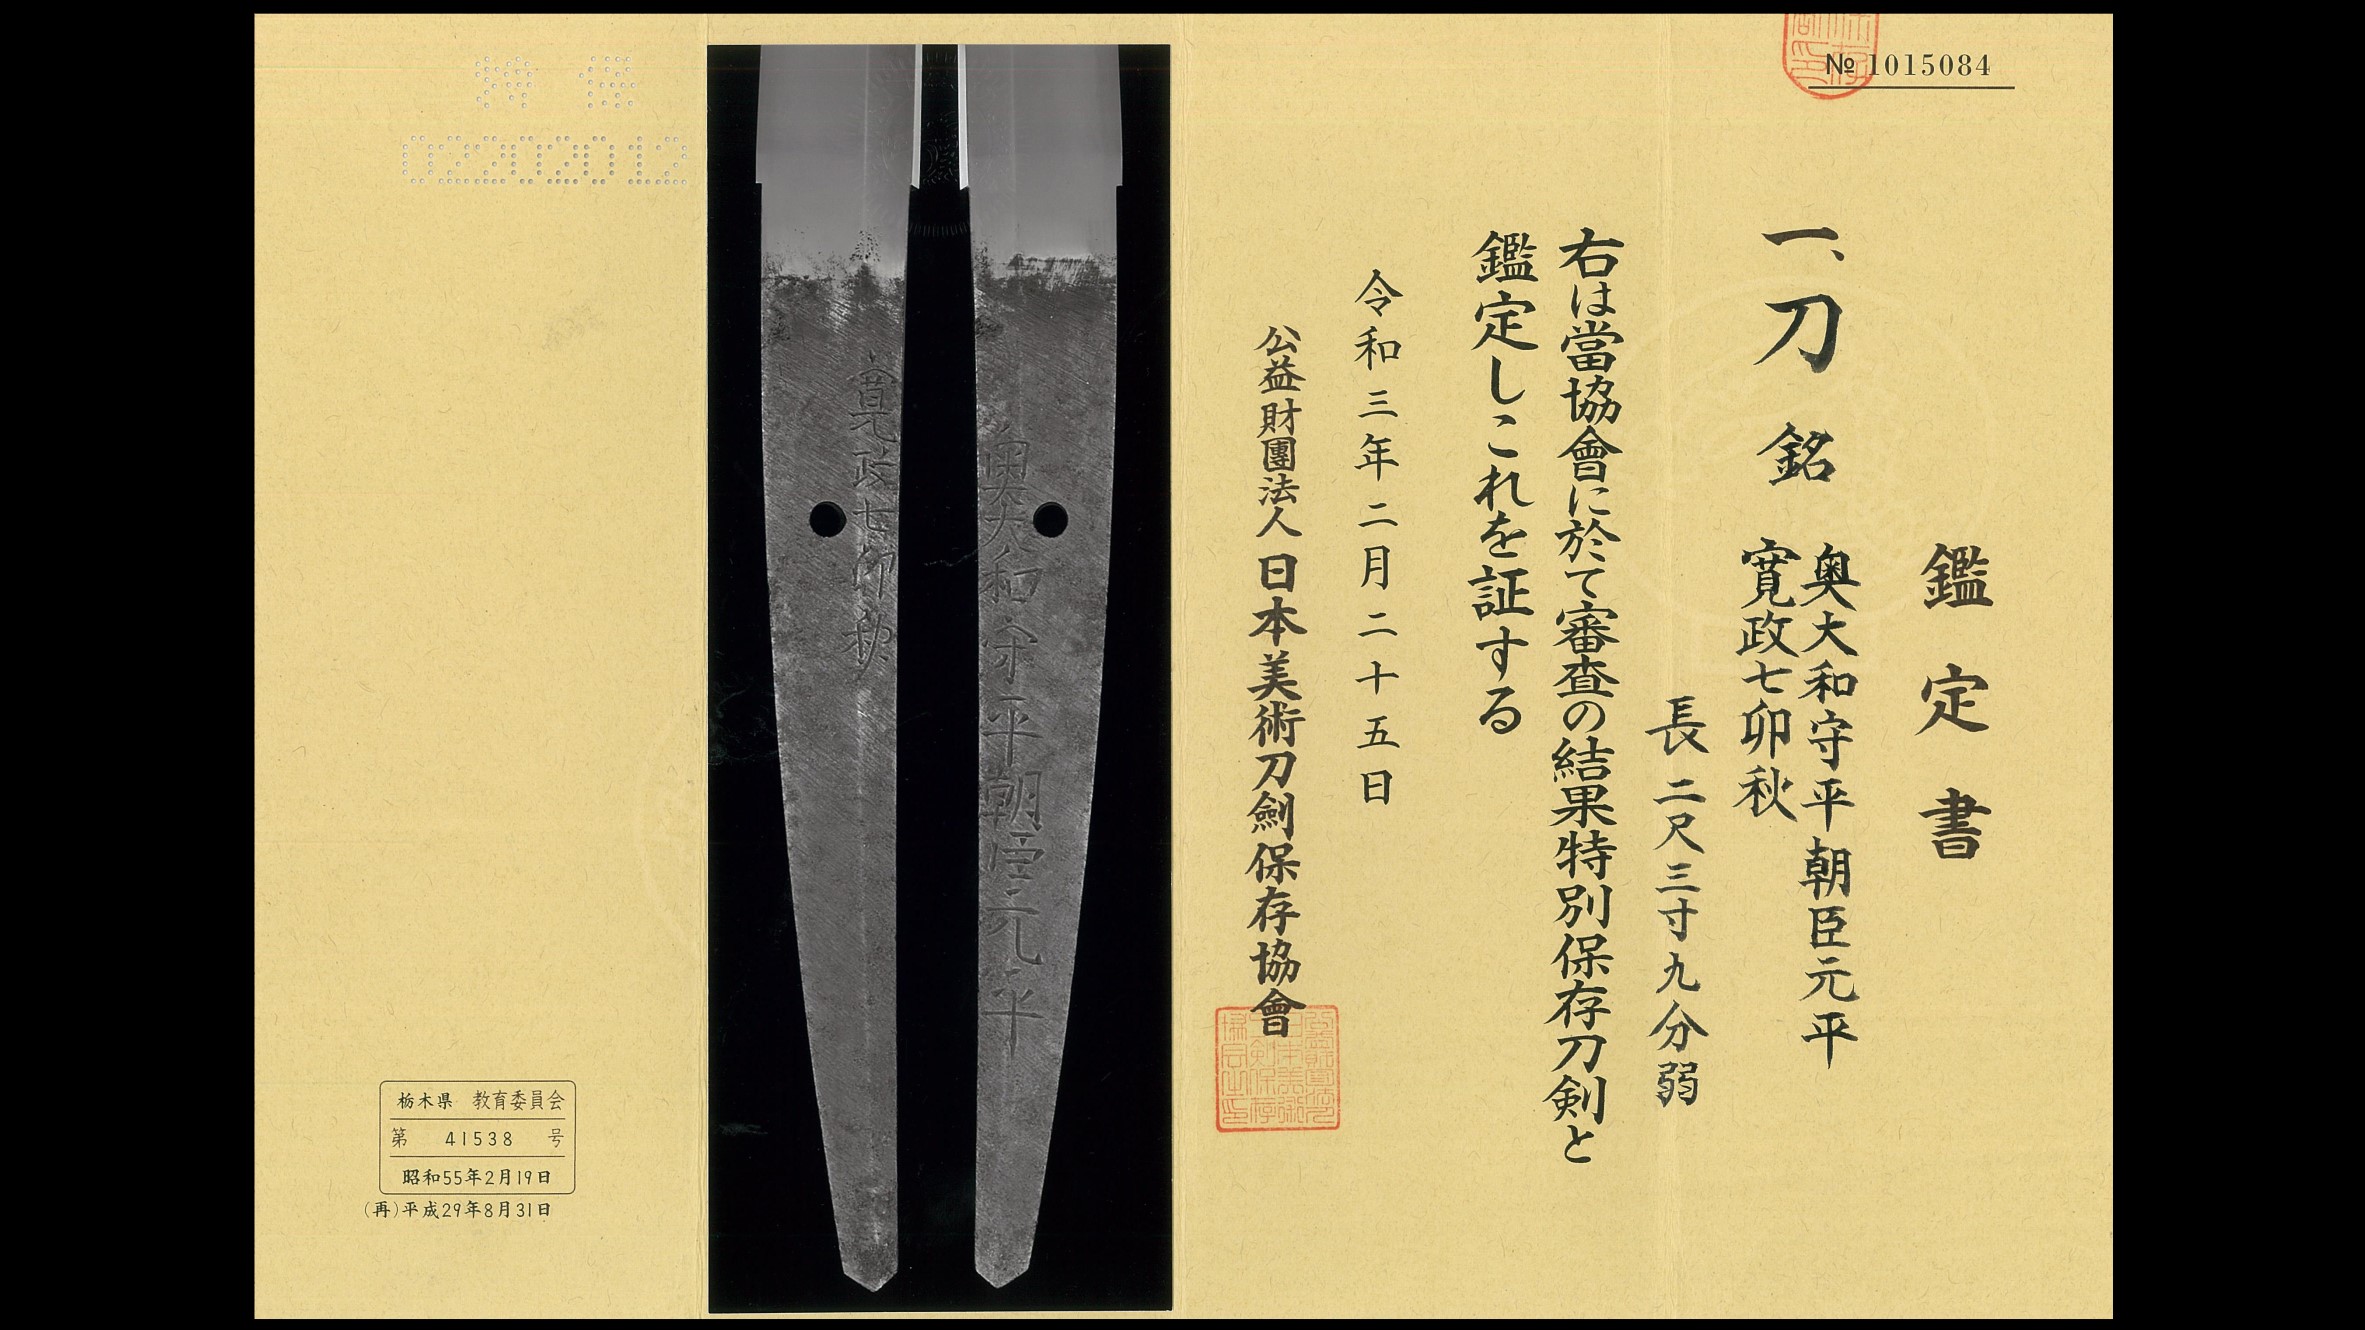 № 1015084
鑑定書
一、刀 銘 奥大和守平朝臣元平
寛政七卯秋
長 二尺三寸九分弱
右は當協會に於て審査の結果特別保存刀剣と
鑑定しこれを証する
令和三年二月二十五日
公益財團法人 日本美術刀劍保存協會
奥大和守平朝臣元平
寛政七卯秋
02202012
栃木県 教育委員会
第 41538 号
昭和55年2月19日
(再)平成29年8月31日